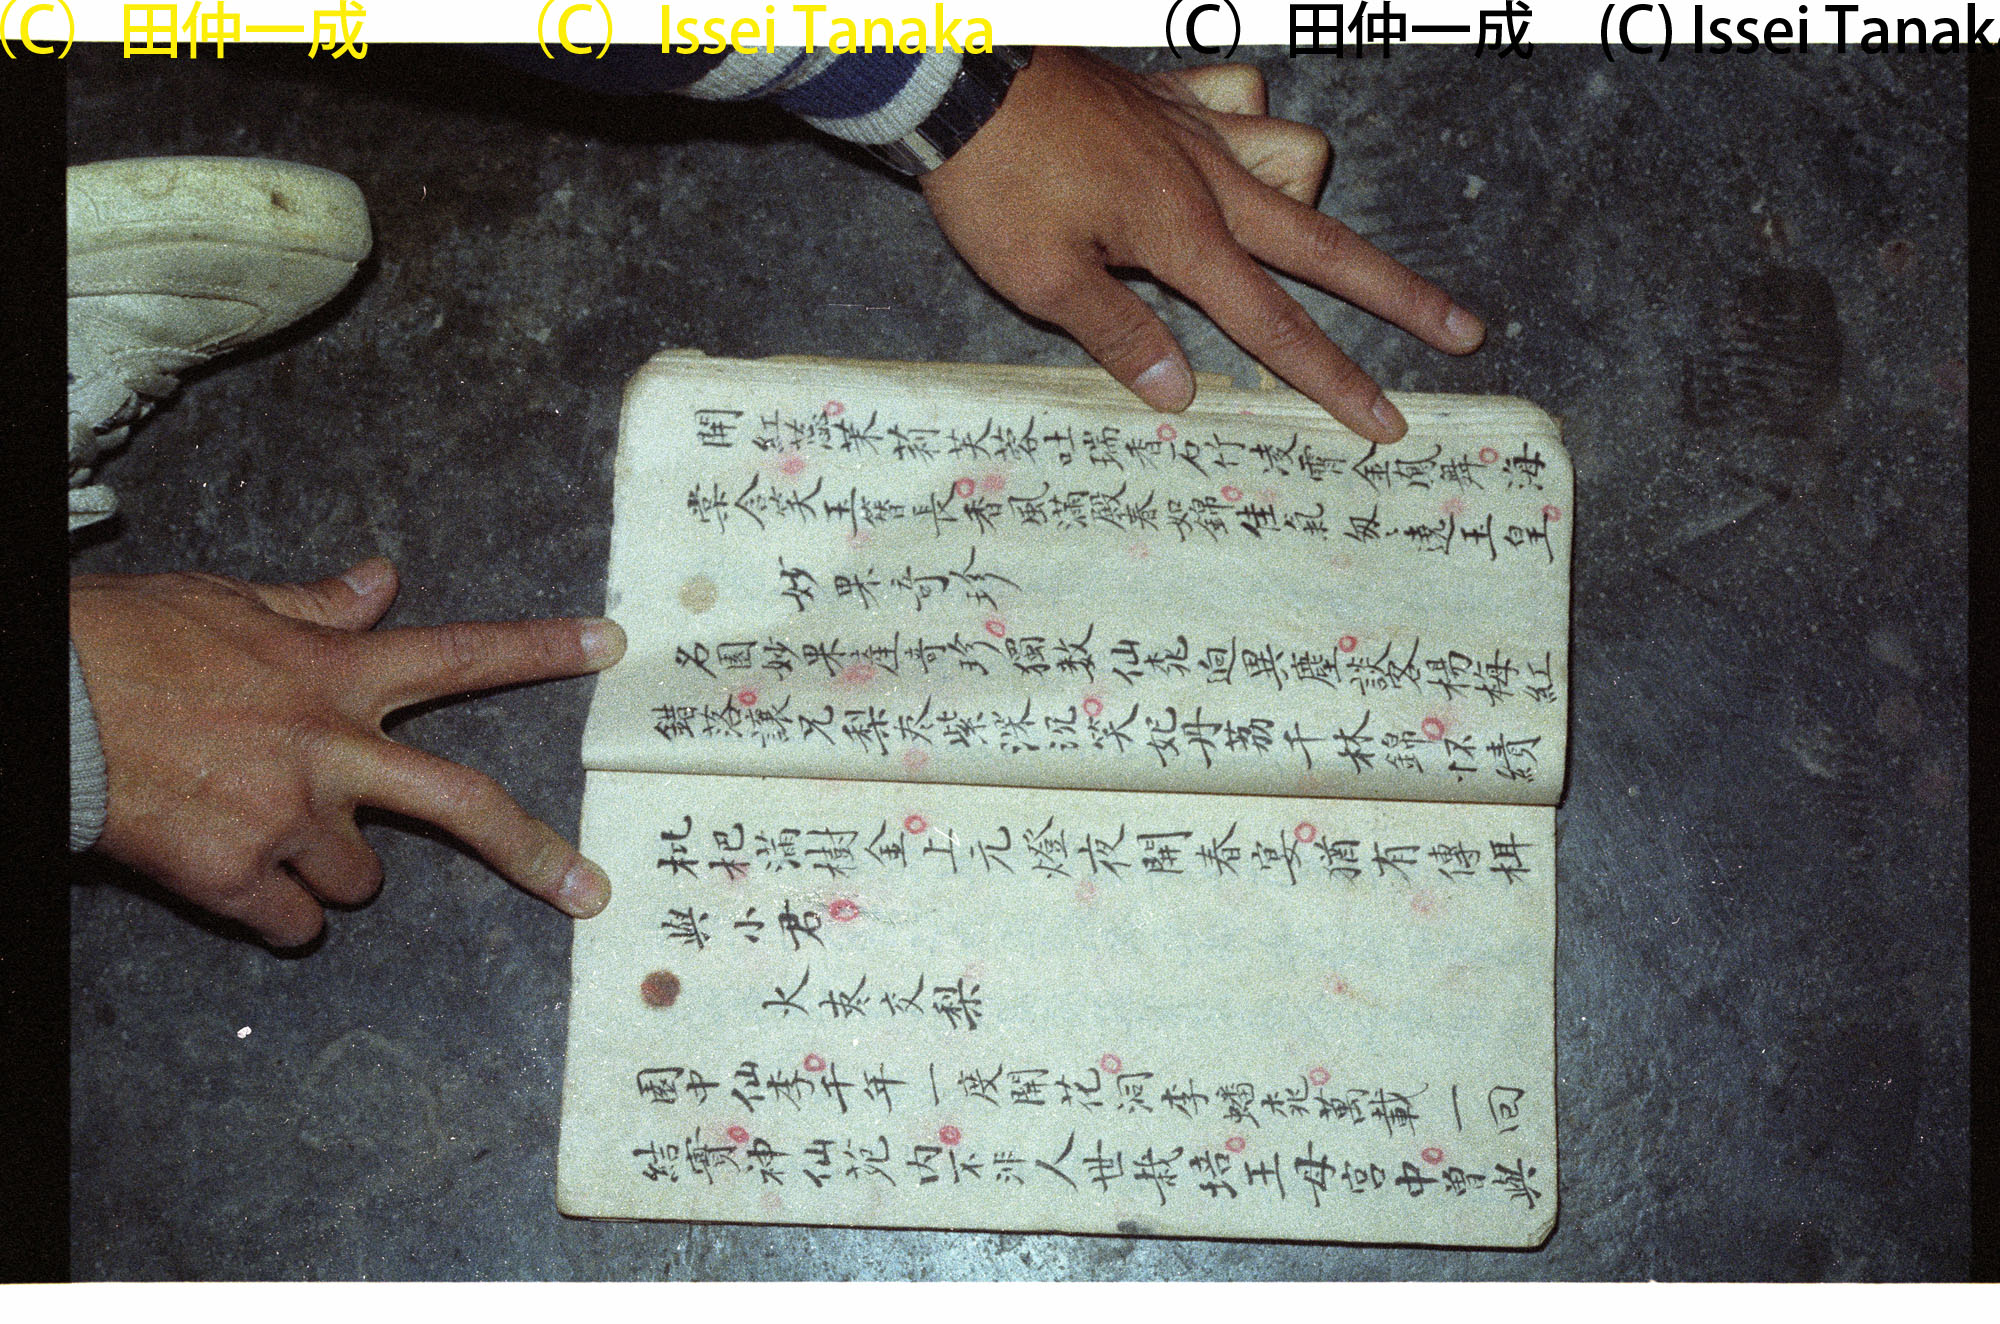 (C) 田仲一成 (C) Issei Tanaka (C) 田仲一成 (C) Issei Tanaka
開紅蕊茉莉芙蓉吐瑞香石竹凌霄金鳳舞海
棠含笑玉簪長香風滿殿春如錦佳氣遶玉皇
妙果奇珍
名園妙果產奇珍獨數仙桃迥異塵談客楊梅紅
錯落讓兄梨棗紫深沉笑妃丹荔千林錦怀績
枇杷滿樹金上元燈夜開春宴猶有傳柑
與小君
火棗交梨
園中仙李千年一度開花洞李蟠桃萬載一回
結實神仙苑內不非人世栽培王母宮中曾與